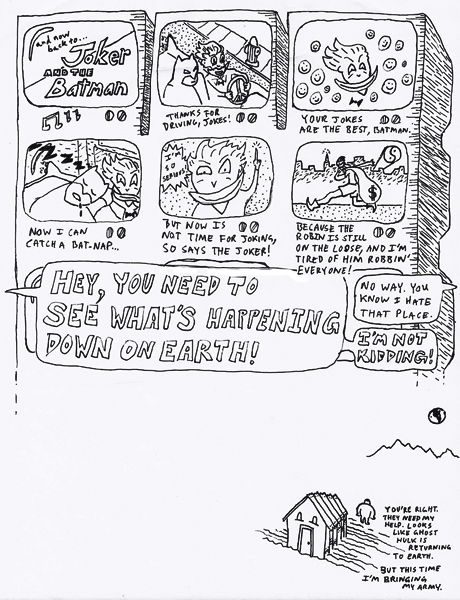 and now
back to...
Joker
AND THE
Batman
THANKS FOR
DRIVING, JOKES!
YOUR JOKES
ARE THE BEST, BATMAN.
Z Z Z Z
NOW I CAN
CATCH A BAT-NAP...
I'M
SO
SERIOUS
BUT NOW IS
NOT TIME FOR JOKING,
SO SAYS THE JOKER!
$
BECAUSE THE
ROBIN IS STILL
ON THE LOOSE, AND I'M
TIRED OF HIM ROBBIN'
EVERYONE!
HEY, YOU NEED TO
SEE WHAT'S HAPPENING
DOWN ON EARTH!
NO WAY. YOU
KNOW I HATE
THAT PLACE.
I'M NOT
KIDDING!
YOU'RE RIGHT.
THEY NEED MY
HELP. LOOKS
LIKE GHOST
HULK IS
RETURNING
TO EARTH.
BUT THIS TIME
I'M BRINGING
MY ARMY.